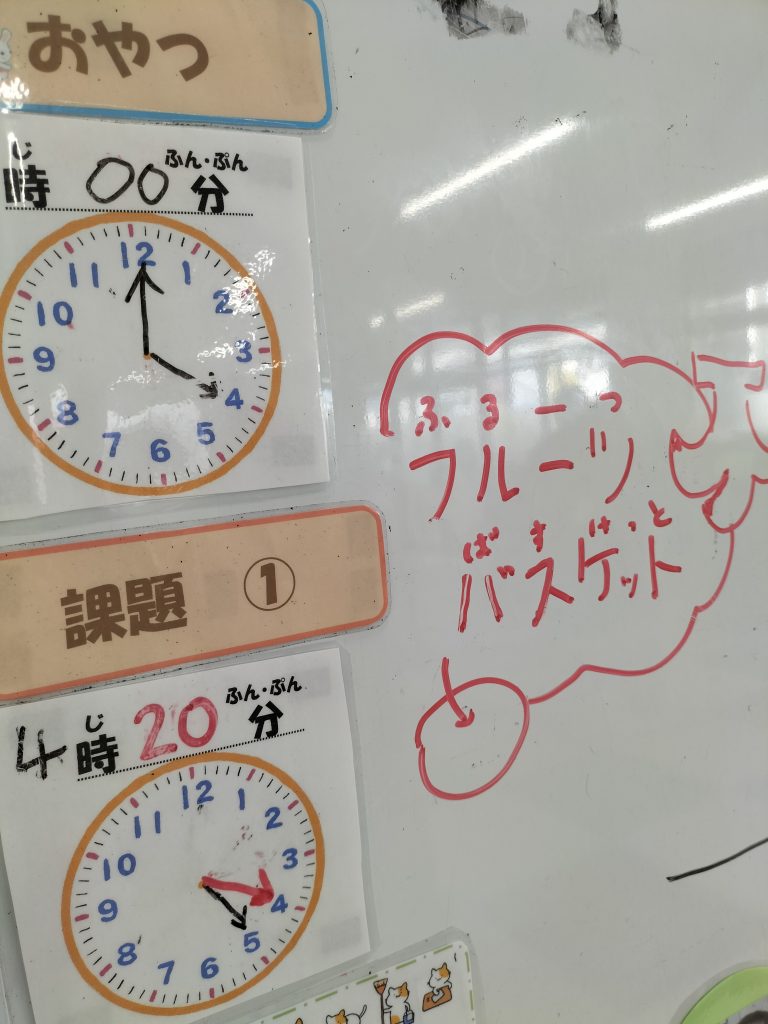 おやつ
じ ふん・ぷん
時 00 分
12
11 1
10 2
9 3
8 4
7 6 5
課題 ①
じ ふん・ぷん
4時20分
12
11 1
10 2
9 3
8 4
7 6 5
ふるーつ
フルーツ
ばすけっと
バスケット